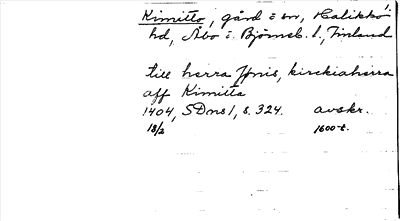 Kimitto, gård i sn, Halikko
hd, Åbo i. Björneb. l., Finland
till herra Jönis, kirckiaherra
aff Kimitta
1404, SDns 1, s. 324. avskr.
18/2 1600-t.